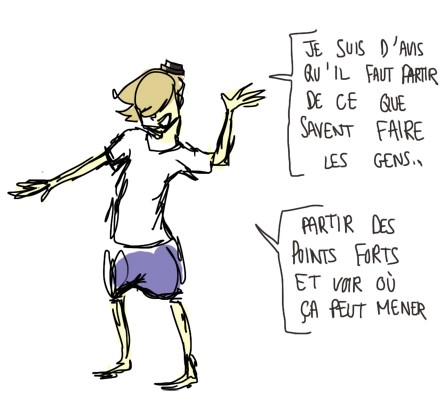 JE SUIS D'AVIS
QU'IL FAUT PARTIR
DE CE QUE
SAVENT FAIRE
LES GENS..
PARTIR DES
POINTS FORTS
ET VOIR OÙ
ÇA PEUT MENER